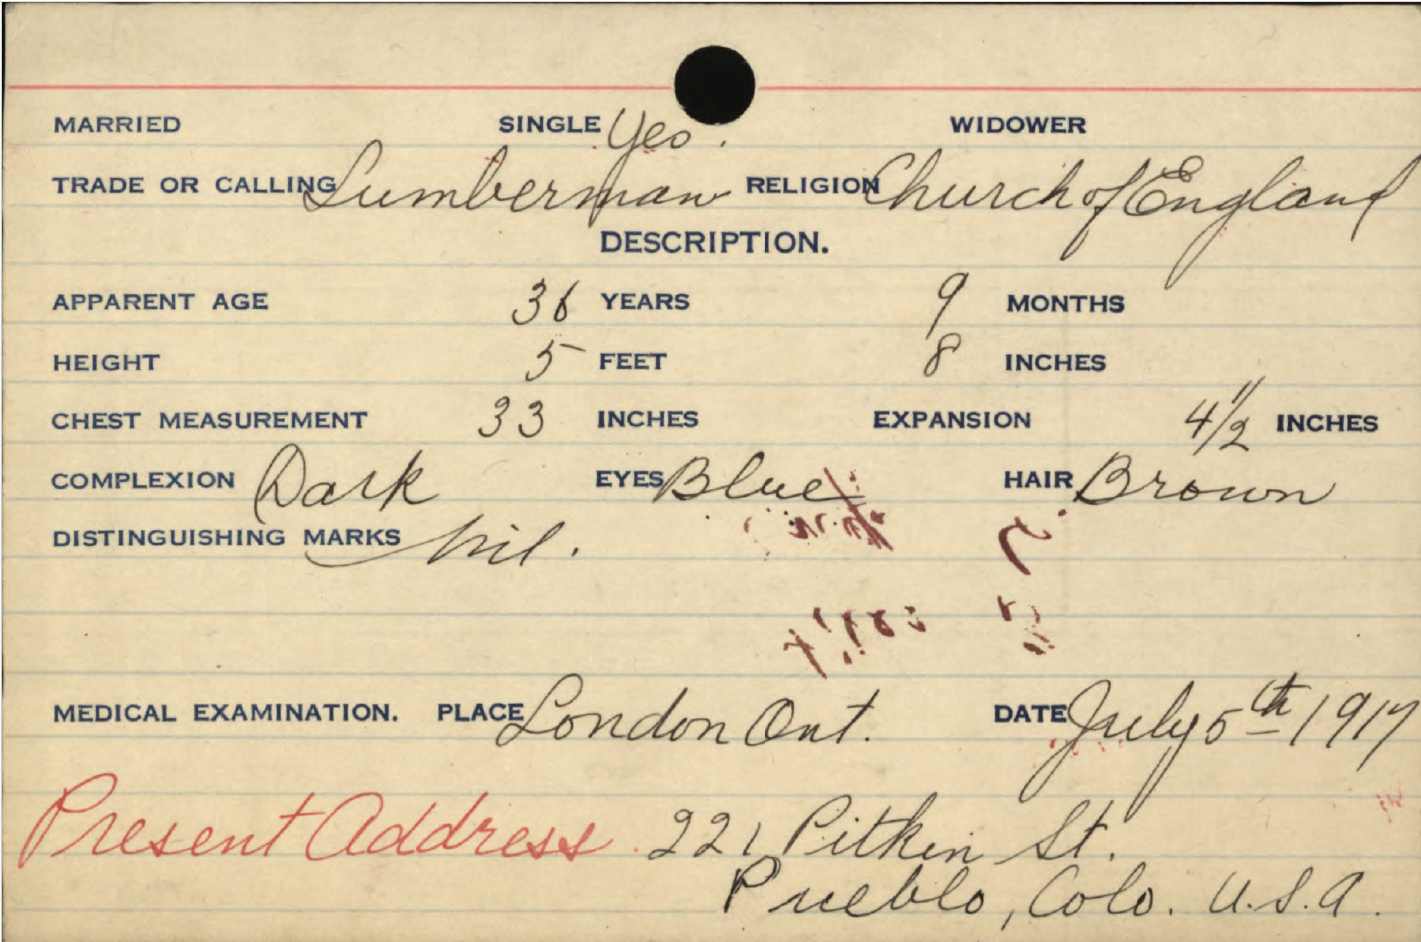 MARRIED SINGLE Yes. WIDOWER
TRADE OR CALLING Lumberman RELIGION Church of England
DESCRIPTION.
APPARENT AGE 36 YEARS 9 MONTHS
HEIGHT 5 FEET 8 INCHES
CHEST MEASUREMENT 33 INCHES EXPANSION 4 1/2 INCHES
COMPLEXION Dark EYES Blue HAIR Brown
DISTINGUISHING MARKS Nil.
MEDICAL EXAMINATION. PLACE London Ont. DATE July 5th 1917
Present Address 221 Pitkin St.
Pueblo, Colo. U.S.A.